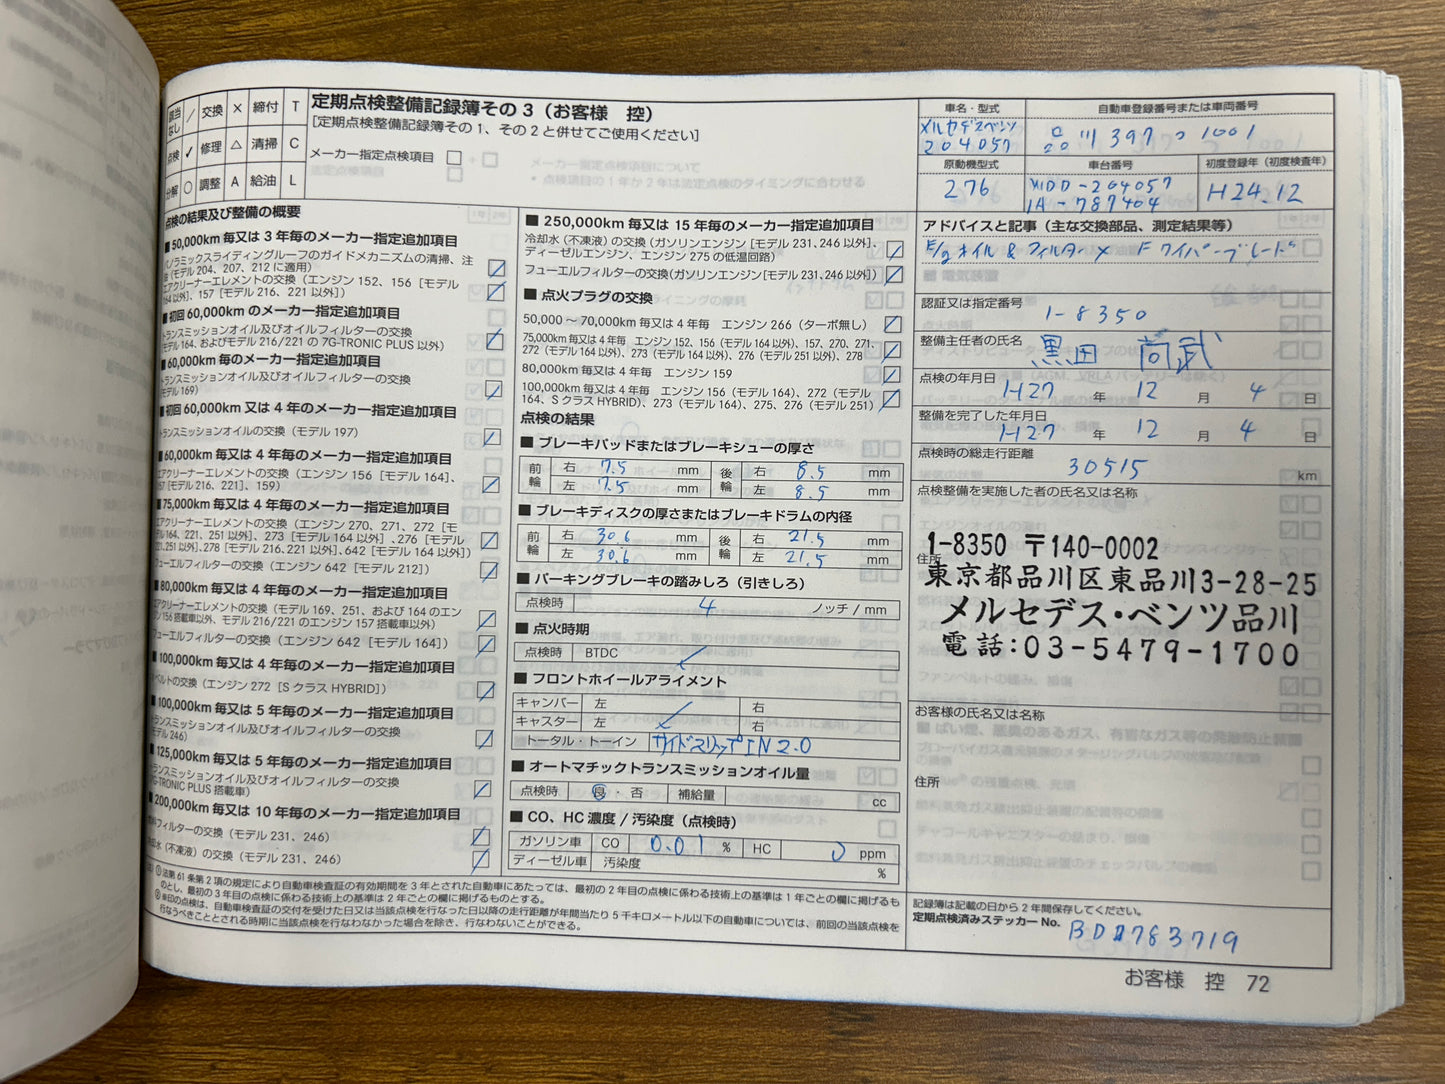 該当なし ／ 交換 × 締付 T
点検 ✓ 修理 △ 清掃 C
分解 ○ 調整 A 給油 L
定期点検整備記録簿その3（お客様　控）
[定期点検整備記録簿その1、その2と併せてご使用ください]
メーカー指定点検項目
点検の結果及び整備の概要
■ 50,000km 毎又は 3 年毎のメーカー指定追加項目
パノラミックスライディングルーフのガイドメカニズムの清掃、注
油（モデル 204、207、212 に適用）
エアクリーナーエレメントの交換（エンジン 152、156［モデル
164 以外］、157［モデル 216、221 以外］）
■ 初回 60,000km のメーカー指定追加項目
トランスミッションオイル及びオイルフィルターの交換
（モデル 164、およびモデル 216/221 の 7G-TRONIC PLUS 以外）
■ 60,000km 毎のメーカー指定追加項目
トランスミッションオイル及びオイルフィルターの交換
（モデル 169）
■ 初回 60,000km 又は 4 年毎のメーカー指定追加項目
トランスミッションオイルの交換（モデル 197）
■ 60,000km 毎又は 4 年毎のメーカー指定追加項目
エアクリーナーエレメントの交換（エンジン 156［モデル 164］、
157［モデル 216、221］、159）
■ 75,000km 毎又は 4 年毎のメーカー指定追加項目
エアクリーナーエレメントの交換（エンジン 270、271、272［モ
デル 164、221、251 以外］、273［モデル 164 以外］、276［モデル
221、251 以外］、278［モデル 216、221 以外］、642［モデル 164 以外］）
フューエルフィルターの交換（エンジン 642［モデル 212］）
■ 80,000km 毎又は 4 年毎のメーカー指定追加項目
エアクリーナーエレメントの交換（モデル 169、251、および 164 のエン
ジン 156 搭載車以外、モデル 216/221 のエンジン 157 搭載車以外）
フューエルフィルターの交換（エンジン 642［モデル 164］）
■ 100,000km 毎又は 4 年毎のメーカー指定追加項目
ベルトの交換（エンジン 272［S クラス HYBRID］）
■ 100,000km 毎又は 5 年毎のメーカー指定追加項目
トランスミッションオイル及びオイルフィルターの交換
（モデル 246）
■ 125,000km 毎又は 5 年毎のメーカー指定追加項目
トランスミッションオイル及びオイルフィルターの交換
（7G-TRONIC PLUS 搭載車）
■ 200,000km 毎又は 10 年毎のメーカー指定追加項目
燃料フィルターの交換（モデル 231、246）
冷却水（不凍液）の交換（モデル 231、246）
■ 250,000km 毎又は 15 年毎のメーカー指定追加項目
冷却水（不凍液）の交換（ガソリンエンジン［モデル 231、246 以外］、
ディーゼルエンジン、エンジン 275 の低温回路）
フューエルフィルターの交換（ガソリンエンジン［モデル 231、246 以外］）
■ 点火プラグの交換
50,000 ～ 70,000km 毎又は 4 年毎　エンジン 266（ターボ無し）
75,000km 毎又は 4 年毎　エンジン 152、156（モデル 164 以外）、157、270、271、
272（モデル 164 以外）、273（モデル 164 以外）、276（モデル 251 以外）、278
80,000km 毎又は 4 年毎　エンジン 159
100,000km 毎又は 4 年毎　エンジン 156（モデル 164）、272（モデル
164、S クラス HYBRID）、273（モデル 164）、275、276（モデル 251）
点検の結果
■ ブレーキパッドまたはブレーキシューの厚さ
前輪 右 7.5 mm 後輪 右 8.5 mm
左 7.5 mm 左 8.5 mm
■ ブレーキディスクの厚さまたはブレーキドラムの内径
前輪 右 30.6 mm 後輪 右 21.5 mm
左 30.6 mm 左 21.5 mm
■ パーキングブレーキの踏みしろ（引きしろ）
点検時 4 ノッチ / mm
■ 点火時期
点検時 BTDC
■ フロントホイールアライメント
キャンバー 左 右
キャスター 左 右
トータル・トーイン サイドスリップ IN 2.0
■ オートマチックトランスミッションオイル量
点検時 良・否 補給量 cc
■ CO、HC 濃度 / 汚染度（点検時）
ガソリン車 CO 0.01 % HC 0 ppm
ディーゼル車 汚染度 %
① 法第 61 条第 2 項の規定により自動車検査証の有効期間を 3 年とされた自動車にあたっては、最初の 2 年目の点検に係わる技術上の基準は 1 年ごとの欄に掲げるも
のとし、最初の 3 年目の点検に係わる技術上の基準は 2 年ごとの欄に掲げるものとする。
② ※印の点検は、自動車検査証の交付を受けた日又は当該点検を行なった日以降の走行距離が年間当たり 5 千キロメートル以下の自動車については、前回の当該点検を
行なうべきこととされる時期に当該点検を行なわなかった場合を除き、行なわないことができる。
車名・型式 自動車登録番号または車両番号
メルセデスベンツ
204057
品川 397 つ 1001
原動機型式 車台番号 初度登録年（初度検査年）
276
WDD-204057
1A-787404
H24.12
アドバイスと記事（主な交換部品、測定結果等）
E/g オイル & フィルター × F ワイパーブレード
認証又は指定番号
1-8350
整備主任者の氏名
黒田 尚武
点検の年月日
H27 年 12 月 4 日
整備を完了した年月日
H27 年 12 月 4 日
点検時の総走行距離
30515 km
点検整備を実施した者の氏名又は名称
1-8350 〒140-0002
住所
東京都品川区東品川3-28-25
メルセデス・ベンツ品川
電話:03-5479-1700
お客様の氏名又は名称
住所
記録簿は記載の日から 2 年間保存してください。
定期点検済みステッカー No.
お客様　控　72